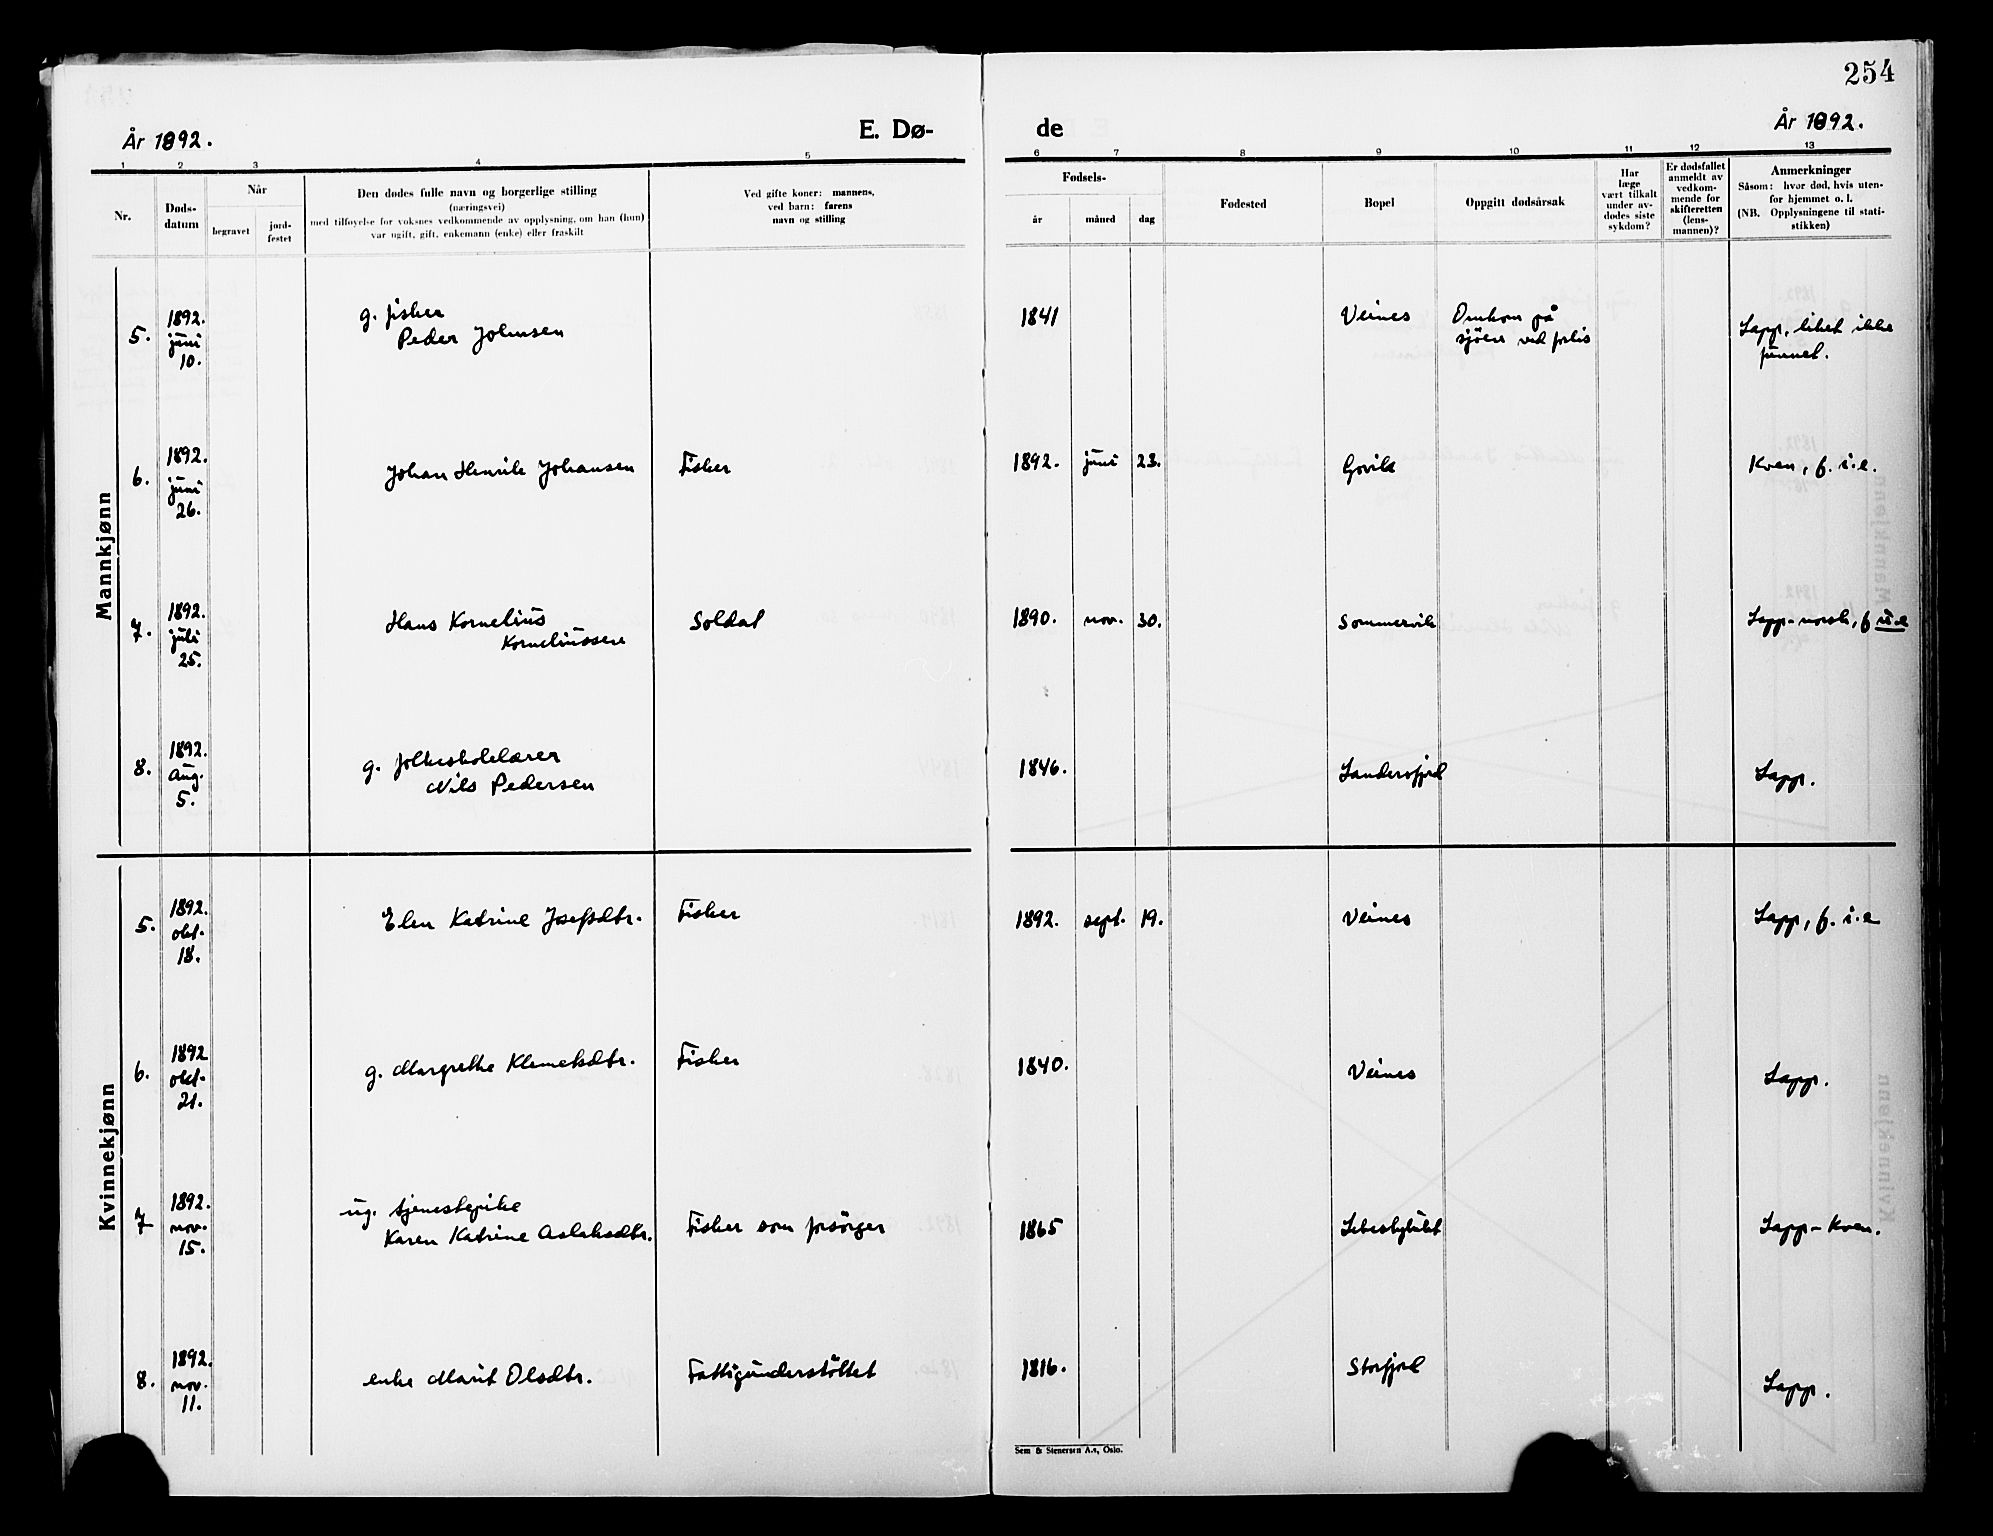 254
År 1892.
E. Dø-
de
År 1892.
1 2 3 4 5
6 7 8 9 10 11 12 13
Nr.
Døds-
datum
Når
begravet
jord-
festet
Den dødes fulle navn og borgerlige stilling
(næringsvei)
med tilføyelse for voksnes vedkommende av opplysning, om han (hun)
var ugift, gift, enkemann (enke) eller fraskilt
Ved gifte koner: mannens,
ved barn: farens
navn og stilling
Fødsels-
år
måned
dag
Fødested
Bopel
Oppgitt dødsårsak
Har
læge
vært tilkalt
under av-
dødes siste
sykdom?
Er dødsfallet
anmeldt av
vedkom-
mende for
skifteretten
(lens-
mannen)?
Anmerkninger
Såsom: hvor død, hvis uten-
for hjemmet o. l.
(NB. Opplysningene til stati-
stikken)
Mannkjønn
5.
1892.
juni
10.
g. fisker
Peder Johnsen
1841
Veines
Omkom på
sjöen ved forlis
Lapp, liket ikke
funnet.
6.
1892.
juni
26.
Johan Henrik Johansen
Fisker
1892. juni 23.
Govik
Kven, f. i.e.
7.
1892.
juli
25.
Hans Kornelius
Korneliussen
Soldat
1890. nov. 30.
Sommervik
Lapp-norsk, f u.e
8.
1892.
aug.
5.
g. folkeskolelærer
Nils Pedersen
1846.
Landersfjord
Lapp.
Kvinnekjønn
5.
1892.
okt.
18.
Elen Katrine Josefsdtr.
Fisker
1892. sept. 19.
Veines
Lapp, f. i.e
6.
1892
okt.
21.
g. Margrethe Klemetsdtr.
Fisker
1840.
Veines
Lapp.
7
1892.
nov.
15.
ug. tjenestepike
Karen Katrine Aslaksdtr.
Fisker som forsörger
1865
Lebesbytuktet
Lapp-Kven.
8.
1892.
nov.
11.
enke Marit Olsdtr.
Fattigunderstöttet
1816.
Storfjord
Lapp.
Sem & Stenersen A.s, Oslo.